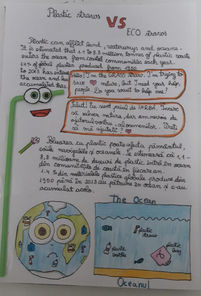 Plastic straws VS ECO straws
Plastic can affect land, waterways and oceans.
It is estimated that 1.1 to 8.8 million tonnes of plastic waste
enters the ocean from coastal communities each year.
of plastic produced from 1950
to 2013 has
the ocean and has
accumulated there
Hello! I'm the GRASS straw. I'm trying to
save nature, but I need your help,
people. Do you want to help me?
Salut! Eu sunt paiul de IARBĂ. Încerc
să salvez natura, dar am nevoie de
ajutorul vostru, oamenilor. Vreți
să mă ajutați?
cu plastic poate afecta pământul,
căile navigabile și oceanele. Se estimează că 1,1-
8,8 milioane de deșeuri de plastic intră în ocean
din comunitățile de coastă în fiecare an.
1.4 % din materialele plastice globale produse din
1950 până în 2013 au pătruns în ocean și s-au
acumulat acolo.
The Ocean
Plastic straw
Plastic bottle
Plastic bag
Oceanul